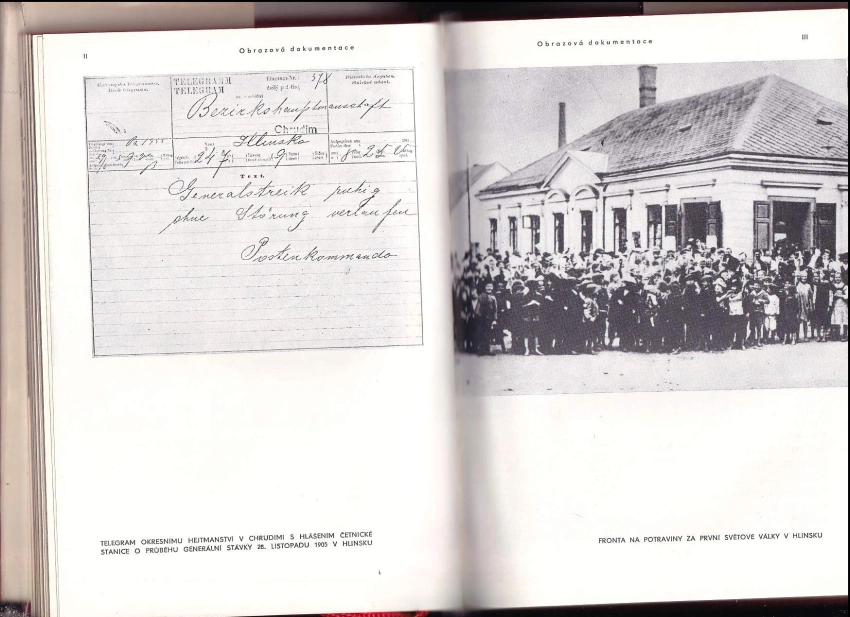 II
Obrazová dokumentace
TELEGRAMM
TELEGRAM
378
Bezirkshauptmannschaft
Chrudim
Hlinsko
247
19
Text.
Generalstreik ruhig
ohne Störung verlaufen
Postenkommando
TELEGRAM OKRESNÍMU HEJTMANSTVÍ V CHRUDIMI S HLÁŠENÍM ČETNICKÉ
STANICE O PRŮBĚHU GENERÁLNÍ STÁVKY 28. LISTOPADU 1905 V HLINSKU
Obrazová dokumentace
III
FRONTA NA POTRAVINY ZA PRVNÍ SVĚTOVÉ VÁLKY V HLINSKU